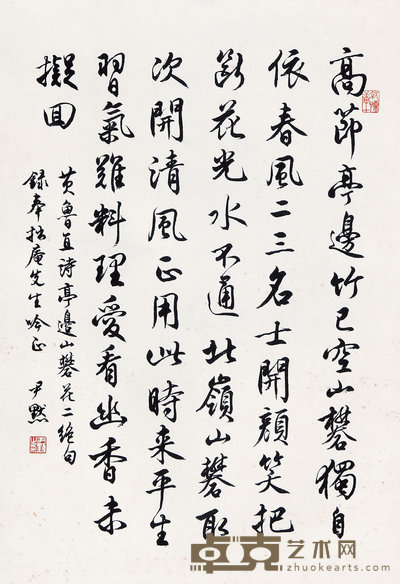 高節亭邊竹已空山礬獨自
依春風二三名士開顏笑把
斷花光水不通北嶺山礬取
次開清風正用此時来平生
習氣難料理愛看幽香未
擬回
黄魯直詩亭邊山礬花二絶句
録奉拙庵先生吟正
尹默
卓克艺术网
www.zhuokearts.com